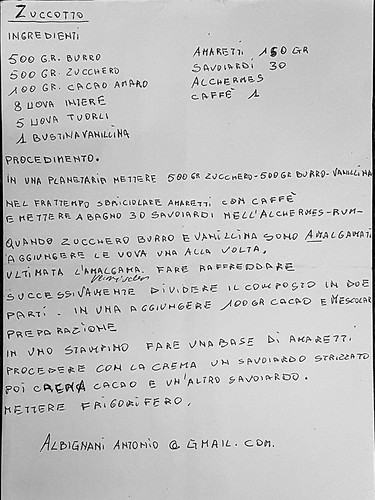 ZUCCOTTO
INGREDIENTI
500 GR. BURRO
500 GR. ZUCCHERO
100 GR. CACAO AMARO
8 UOVA INTERE
5 UOVA TUORLI
1 BUSTINA VANILLINA
AMARETTI 150 GR
SAVOIARDI 30
ALCHERMES
CAFFÈ 1
PROCEDIMENTO.
IN UNA PLANETARIA METTERE 500 GR ZUCCHERO-500GR BURRO-VANILLINA
NEL FRATTEMPO SBRICIOLARE AMARETTI CON CAFFÈ
E METTERE A BAGNO 30 SAVOIARDI NELL'ALCHERMES-RUM-
QUANDO ZUCCHERO BURRO E VANILLINA SONO AMALGAMATI
AGGIUNGERE LE UOVA UNA ALLA VOLTA.
ULTIMATA L'AMALGAMA. FARE RAFFREDDARE
SUCCESSIVAMENTE DIVIDERE IL COMPOSTO IN DUE
PARTI. IN UNA AGGIUNGERE 100 GR CACAO E MESCOLAR
PREPARAZIONE
IN UNO STAMPINO FARE UNA BASE DI AMARETTI.
PROCEDERE CON LA CREMA UN SAVOIARDO STRIZZATO
POI CREMA CACAO E UN'ALTRO SAVOIARDO.
METTERE FRIGORIFERO.
ALBIGNANI ANTONIO @ GMAIL. COM.